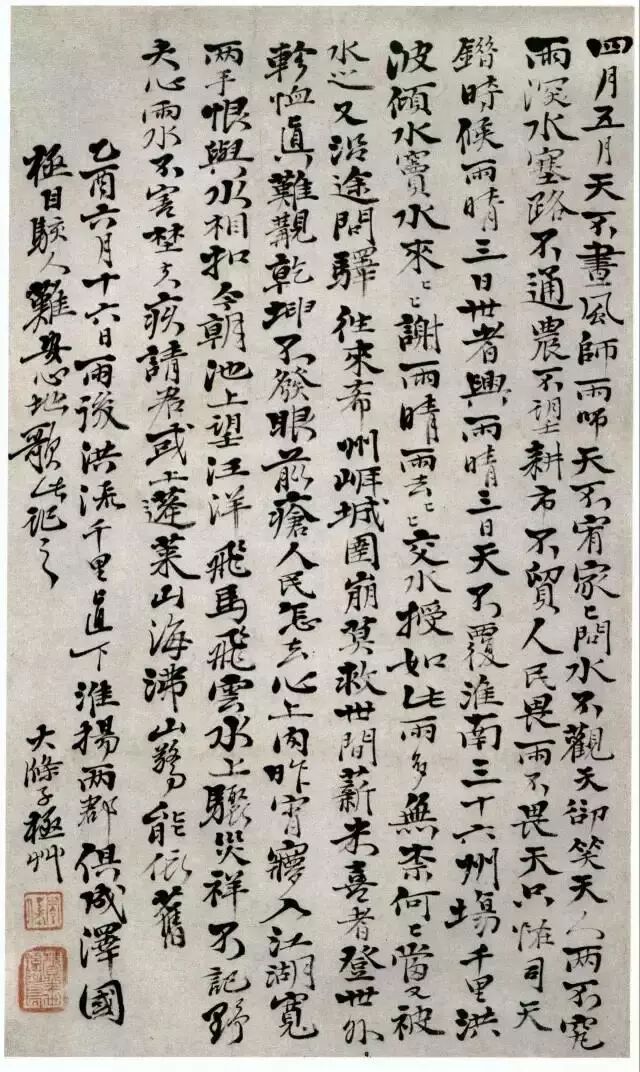 四月五月天不晝風師雨師天不宥家〻問水不觀天卻笑天人两不究
雨深水塞路不通農不望耕市不貿人民畏雨不畏天只恠司天
錯時候雨晴三日世者興雨晴三日天不覆淮南三十六州塲千里洪
波傾水竇水來〻謝雨晴雨去〻交水授如此雨多無柰何〻當又被
水心又沿途問驛往來希州𡹔城圍崩莫救世間薪米喜者登世外
軫恤真難覯乾坤不發眼前瘡人民怎去心上肉昨宵寢入江湖寬
两手恨與水相扣今朝池上望汪洋飛馬飛雲水上驟災祥不記野
夫心雨水不害埜夫疾請君或上蓬萊山海沸山勢能依舊
乙酉六月十六日雨後洪流千里直下淮揚兩郡俱成澤國
極目駭人難安心地歌此記之 大滌子極艸